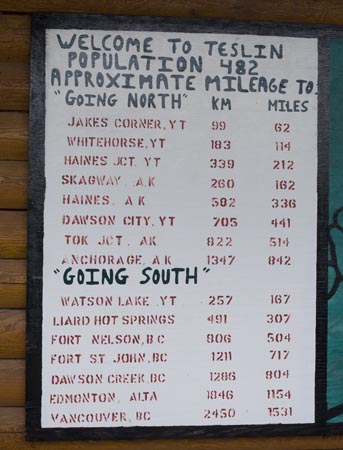 WELCOME TO TESLIN
POPULATION 482
APPROXIMATE MILEAGE TO:
"GOING NORTH" KM MILES
JAKES CORNER, YT 99 62
WHITEHORSE, YT 183 114
HAINES JCT. YT 339 212
SKAGWAY, A.K 260 162
HAINES, A.K 502 336
DAWSON CITY, YT 705 441
TOK JCT, AK 822 514
ANCHORAGE, A.K 1347 842
"GOING SOUTH"
WATSON LAKE, YT 257 167
LIARD HOT SPRINGS 491 307
FORT NELSON, B.C 806 504
FORT ST JOHN, BC 1211 717
DAWSON CREEK, BC 1286 804
EDMONTON, ALTA 1846 1154
VANCOUVER, BC 2450 1531